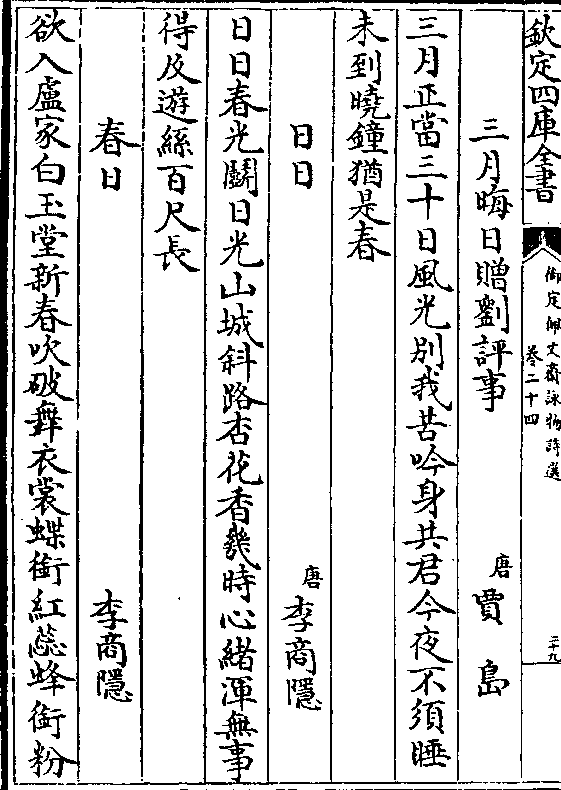 欽定四庫全書
御定佩文齋詠物詩選
卷二十四
二十九
三月晦日贈劉評事 唐 賈島
三月正當三十日風光别我苦吟身共君今夜不須睡
未到曉鐘猶是春
日日 唐 李商隱
日日春光鬭日光山城斜路杏花香幾時心緒渾無事
得及遊絲百尺長
春日 李商隱
欲入盧家白玉堂新春吹破舞衣裳蝶銜紅蕊蜂銜粉